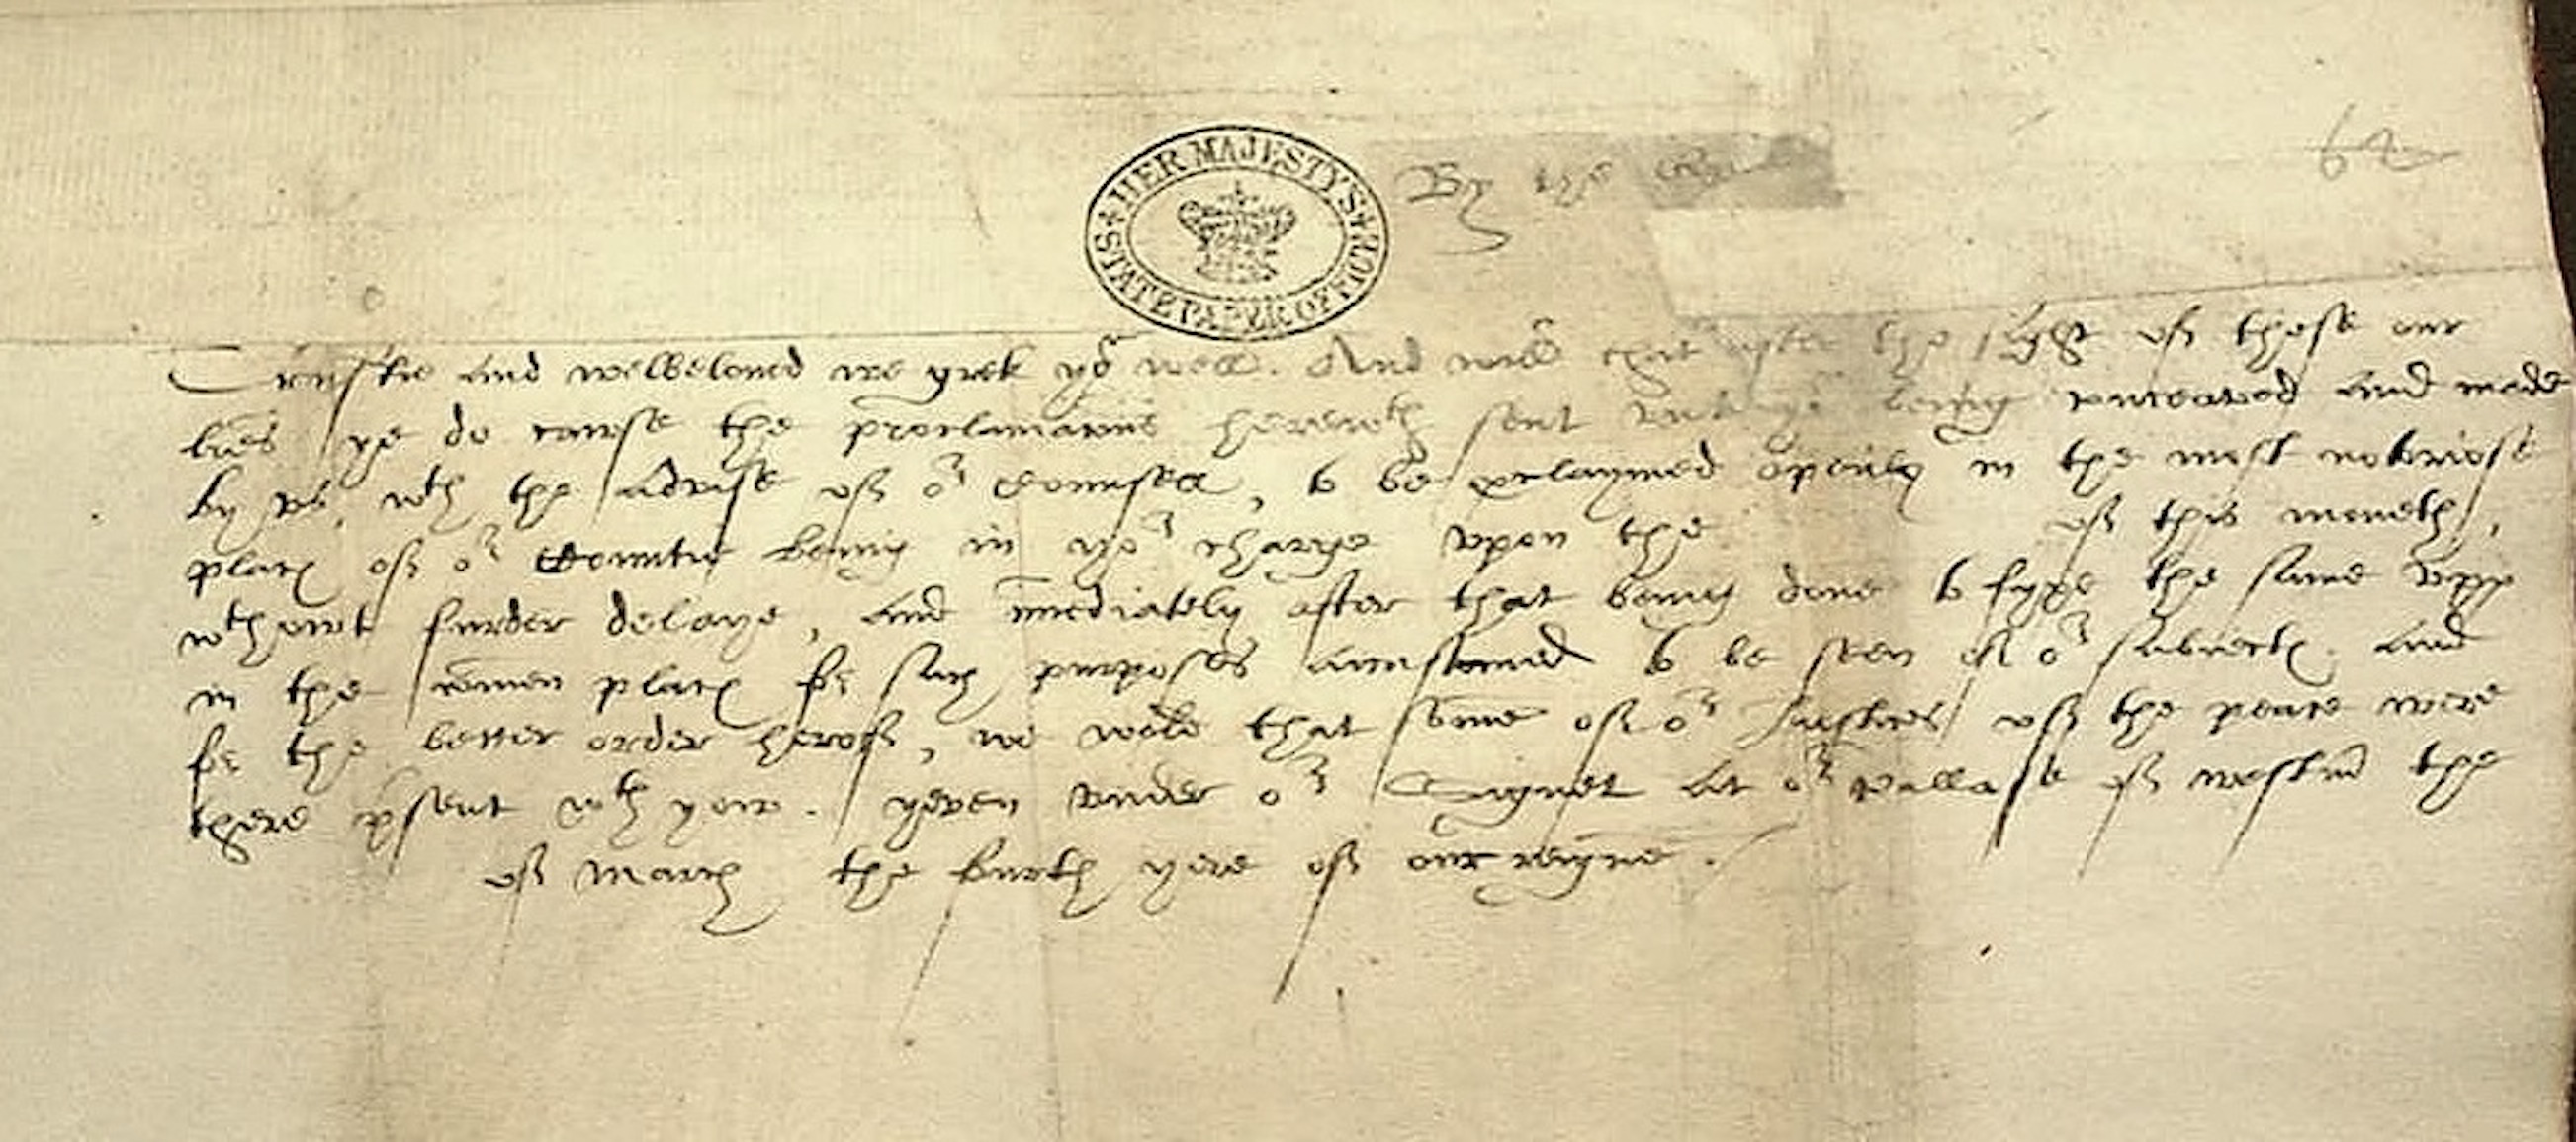 HER MAJESTY'S STATE PAPER OFFICE
By the
62
Trustie and welbeloued we grete yor well. And will that after the sight of these our
lres ye do cause the proclamations herewth sent being conceaved and made
by vs, wth the advise of or Counsell, to be proclaymed openly in the most notoriose
places of or Countie being in yor charge vpon the of this moneth,
wthout furder delaye, and imediately after that being done to fyxe the same vpp
in the comen places for such purposes accustomed to be seen of or subiectes. And
for the better order herof, we wold that some of or Justices of the peace were
there psent wth yow. yeven vnder or Signet at or Pallase of westm the
of March the fourth yere of our reigne.